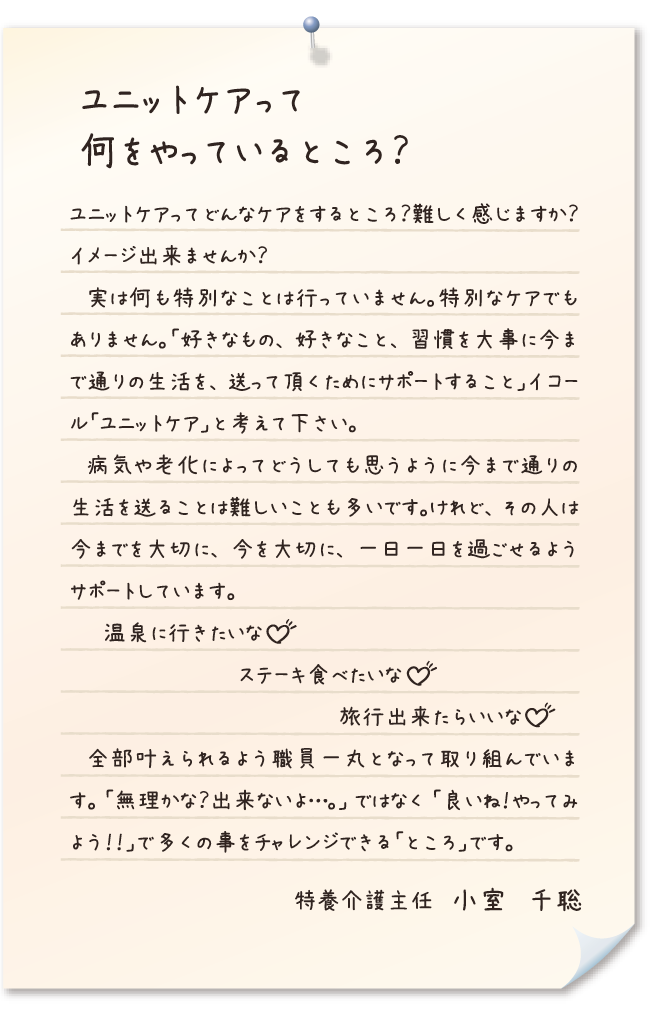 ユニットケアって
何をやっているところ?
ユニットケアってどんなケアをするところ?難しく感じますか?
イメージ出来ませんか?
実は何も特別なことは行っていません。特別なケアでも
ありません。「好きなもの、好きなこと、習慣を大事に今ま
で通りの生活を、送って頂くためにサポートすること」イコー
ル「ユニットケア」と考えて下さい。
病気や老化によってどうしても思うように今まで通りの
生活を送ることは難しいことも多いです。けれど、その人は
今までを大切に、今を大切に、一日一日を過ごせるよう
サポートしています。
温泉に行きたいな♡
ステーキ食べたいな♡
旅行出来たらいいな♡
全部叶えられるよう職員一丸となって取り組んでいま
す。「無理かな?出来ないよ…。」ではなく「良いね!やってみ
よう!!」で多くの事をチャレンジできる「ところ」です。
特養介護主任 小室 千聡